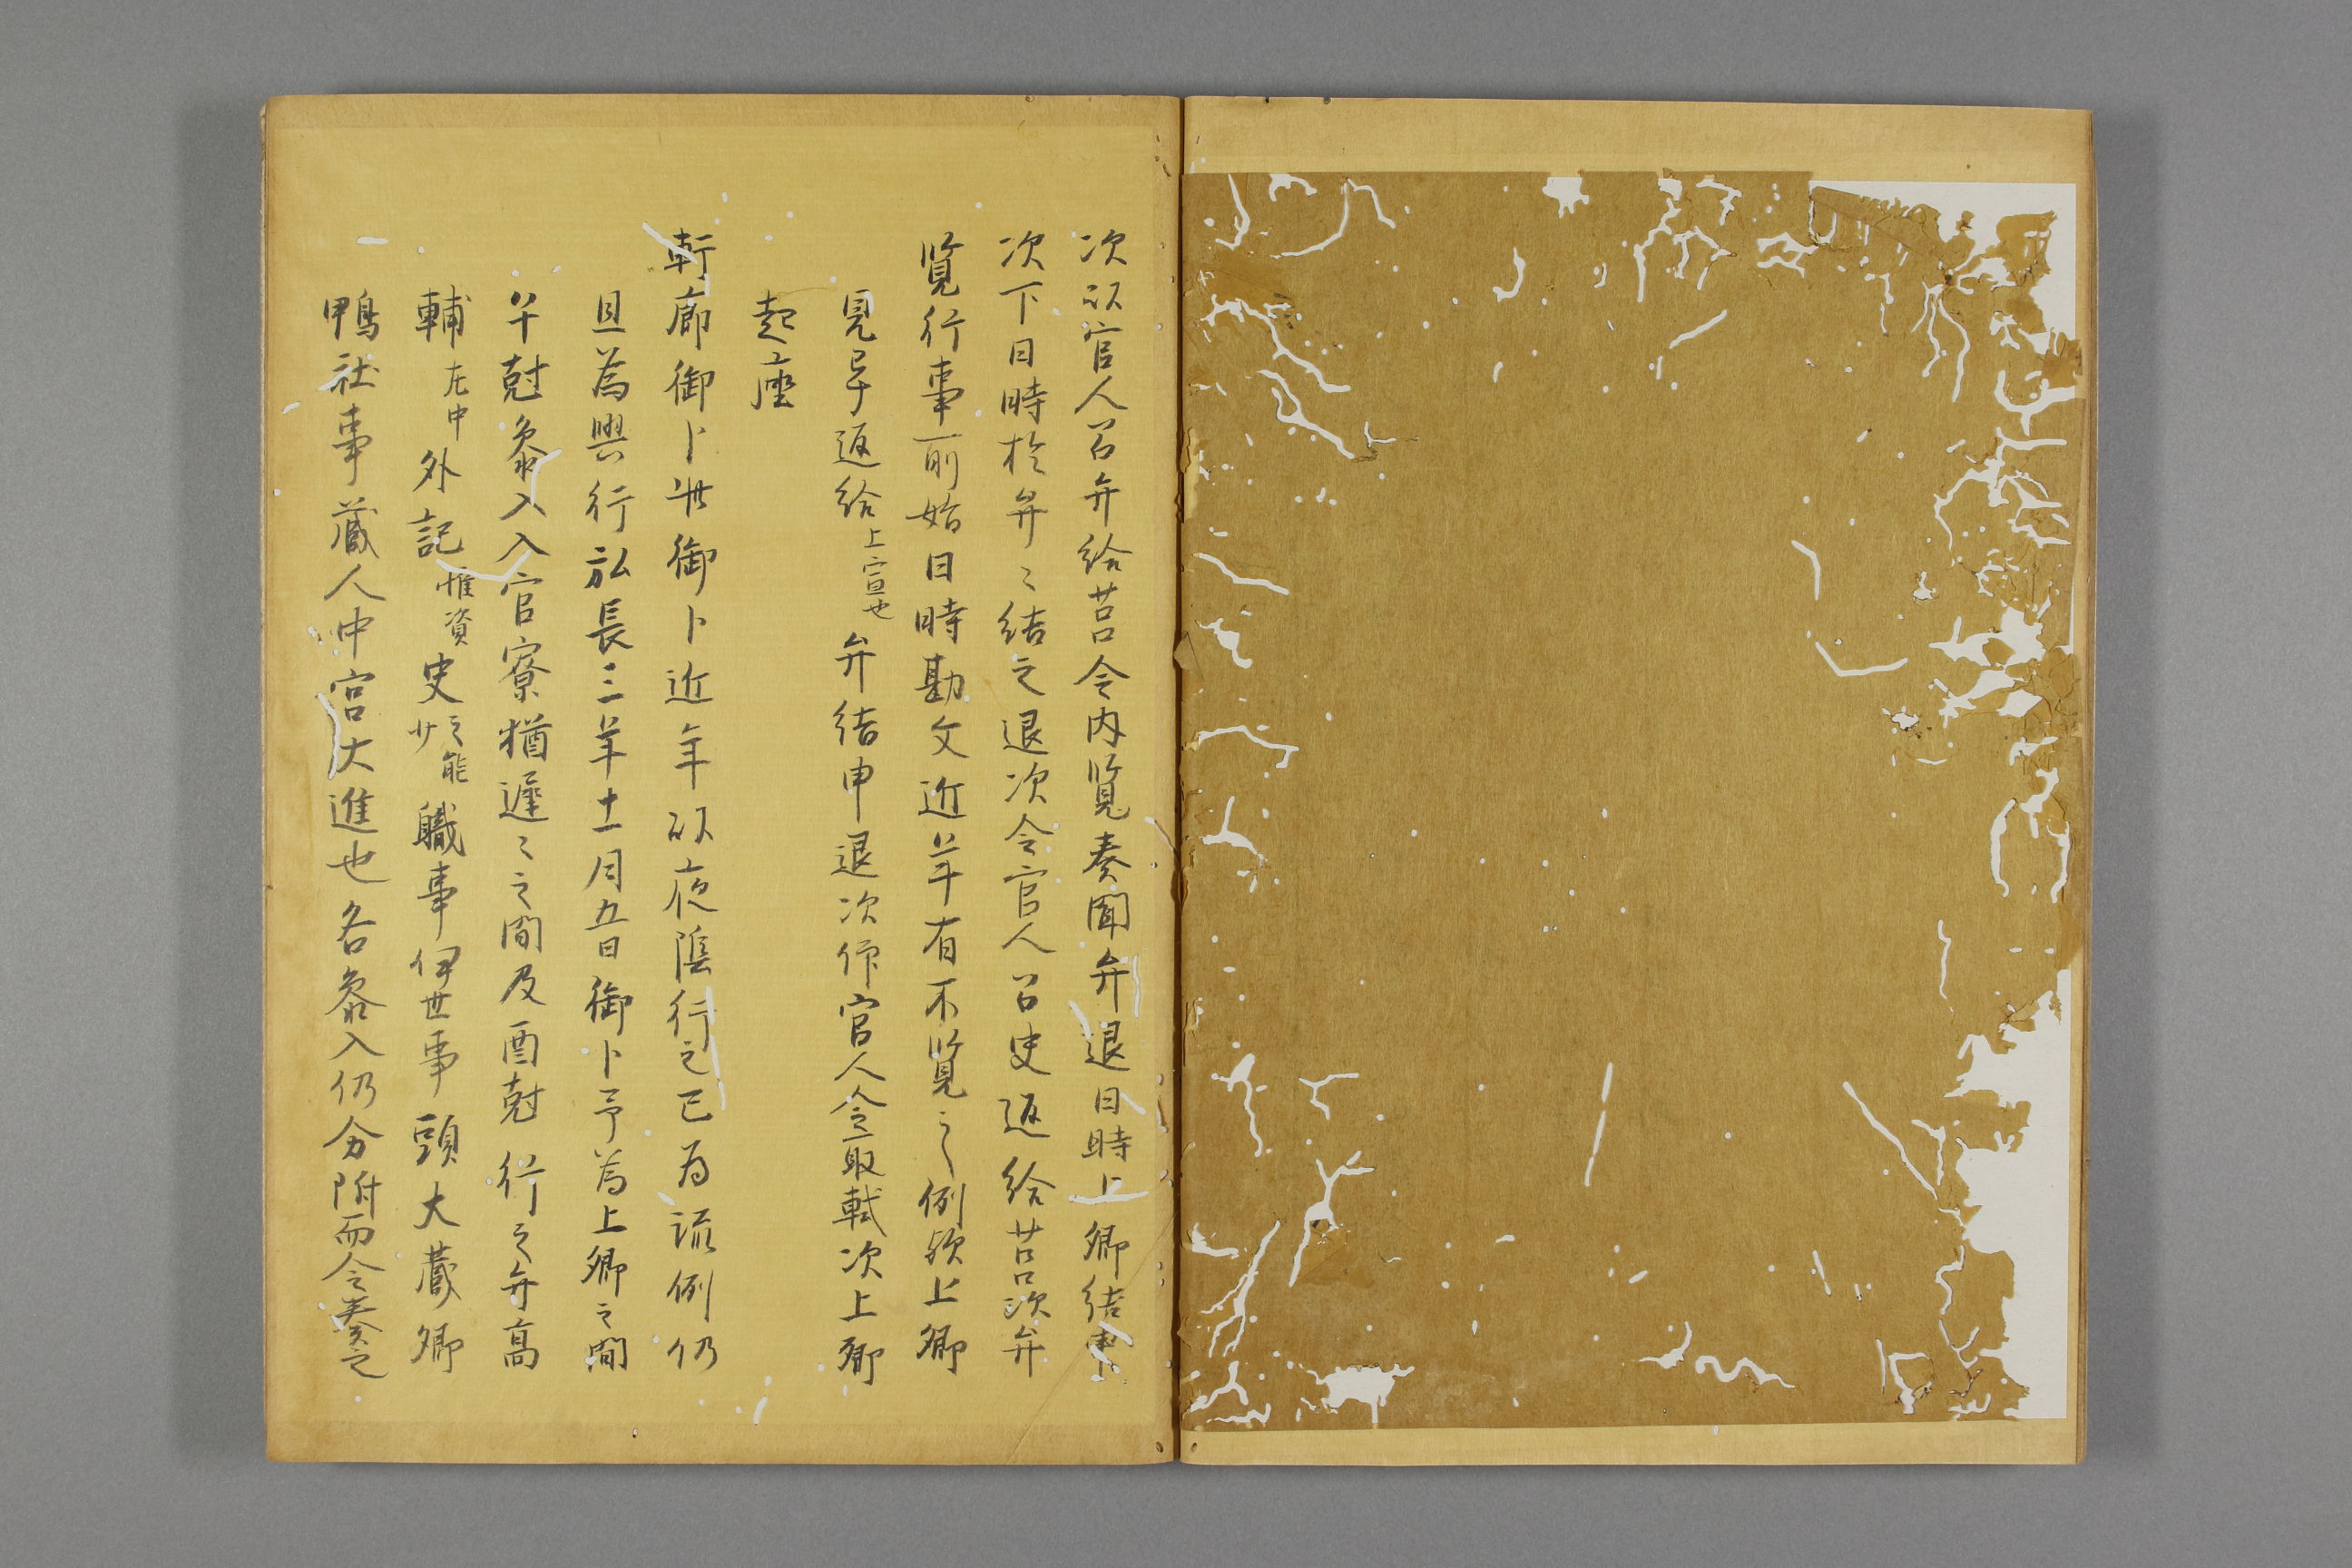 次以官人召弁給筥令内覧奏聞弁退日時上卿結申
次下日時於弁〻結之退次令官人召史返給筥次弁
覧行事所始日時勘文近年有不覧之例歟上卿
見了返給上宣也弁結申退次仰官人令取軾次上卿
起座
軒廊御卜 御卜近年以夜陰行之已為流例仍
且為興行弘長三年十一月五日御卜予為上卿之間
午剋参入 官寮猶遅〻之間及酉剋行之弁高
輔左中外記惟資史職事伊世事頭大蔵卿
鴨社事蔵人中宮大進也各参入仍分附而令奏之